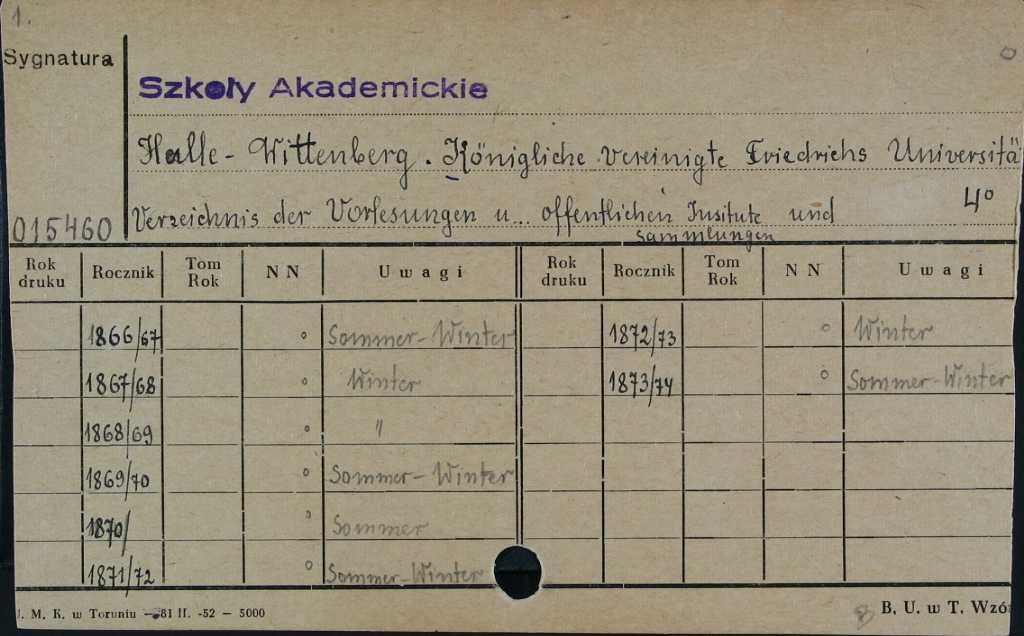 1.
Sygnatura
Szkoły Akademickie
Halle - Wittenberg. Königliche vereinigte Friedrichs Universitä
015460 Verzeichnis der Vorlesungen u... offentlichen Insitute und 4°
Sammlungen
Rok druku Rocznik Tom Rok N N Uwagi Rok druku Rocznik Tom Rok N N Uwagi
1866/67 ° Sommer-Winter 1872/73 ° Winter
1867/68 ° Winter 1873/74 ° Sommer-Winter
1868/69 ° "
1869/70 ° Sommer-Winter
1870/ ° Sommer
1871/72 ° Sommer-Winter
U. M. K. w Toruniu — 81 II. -52 — 5000 8 B. U. w T. Wzór